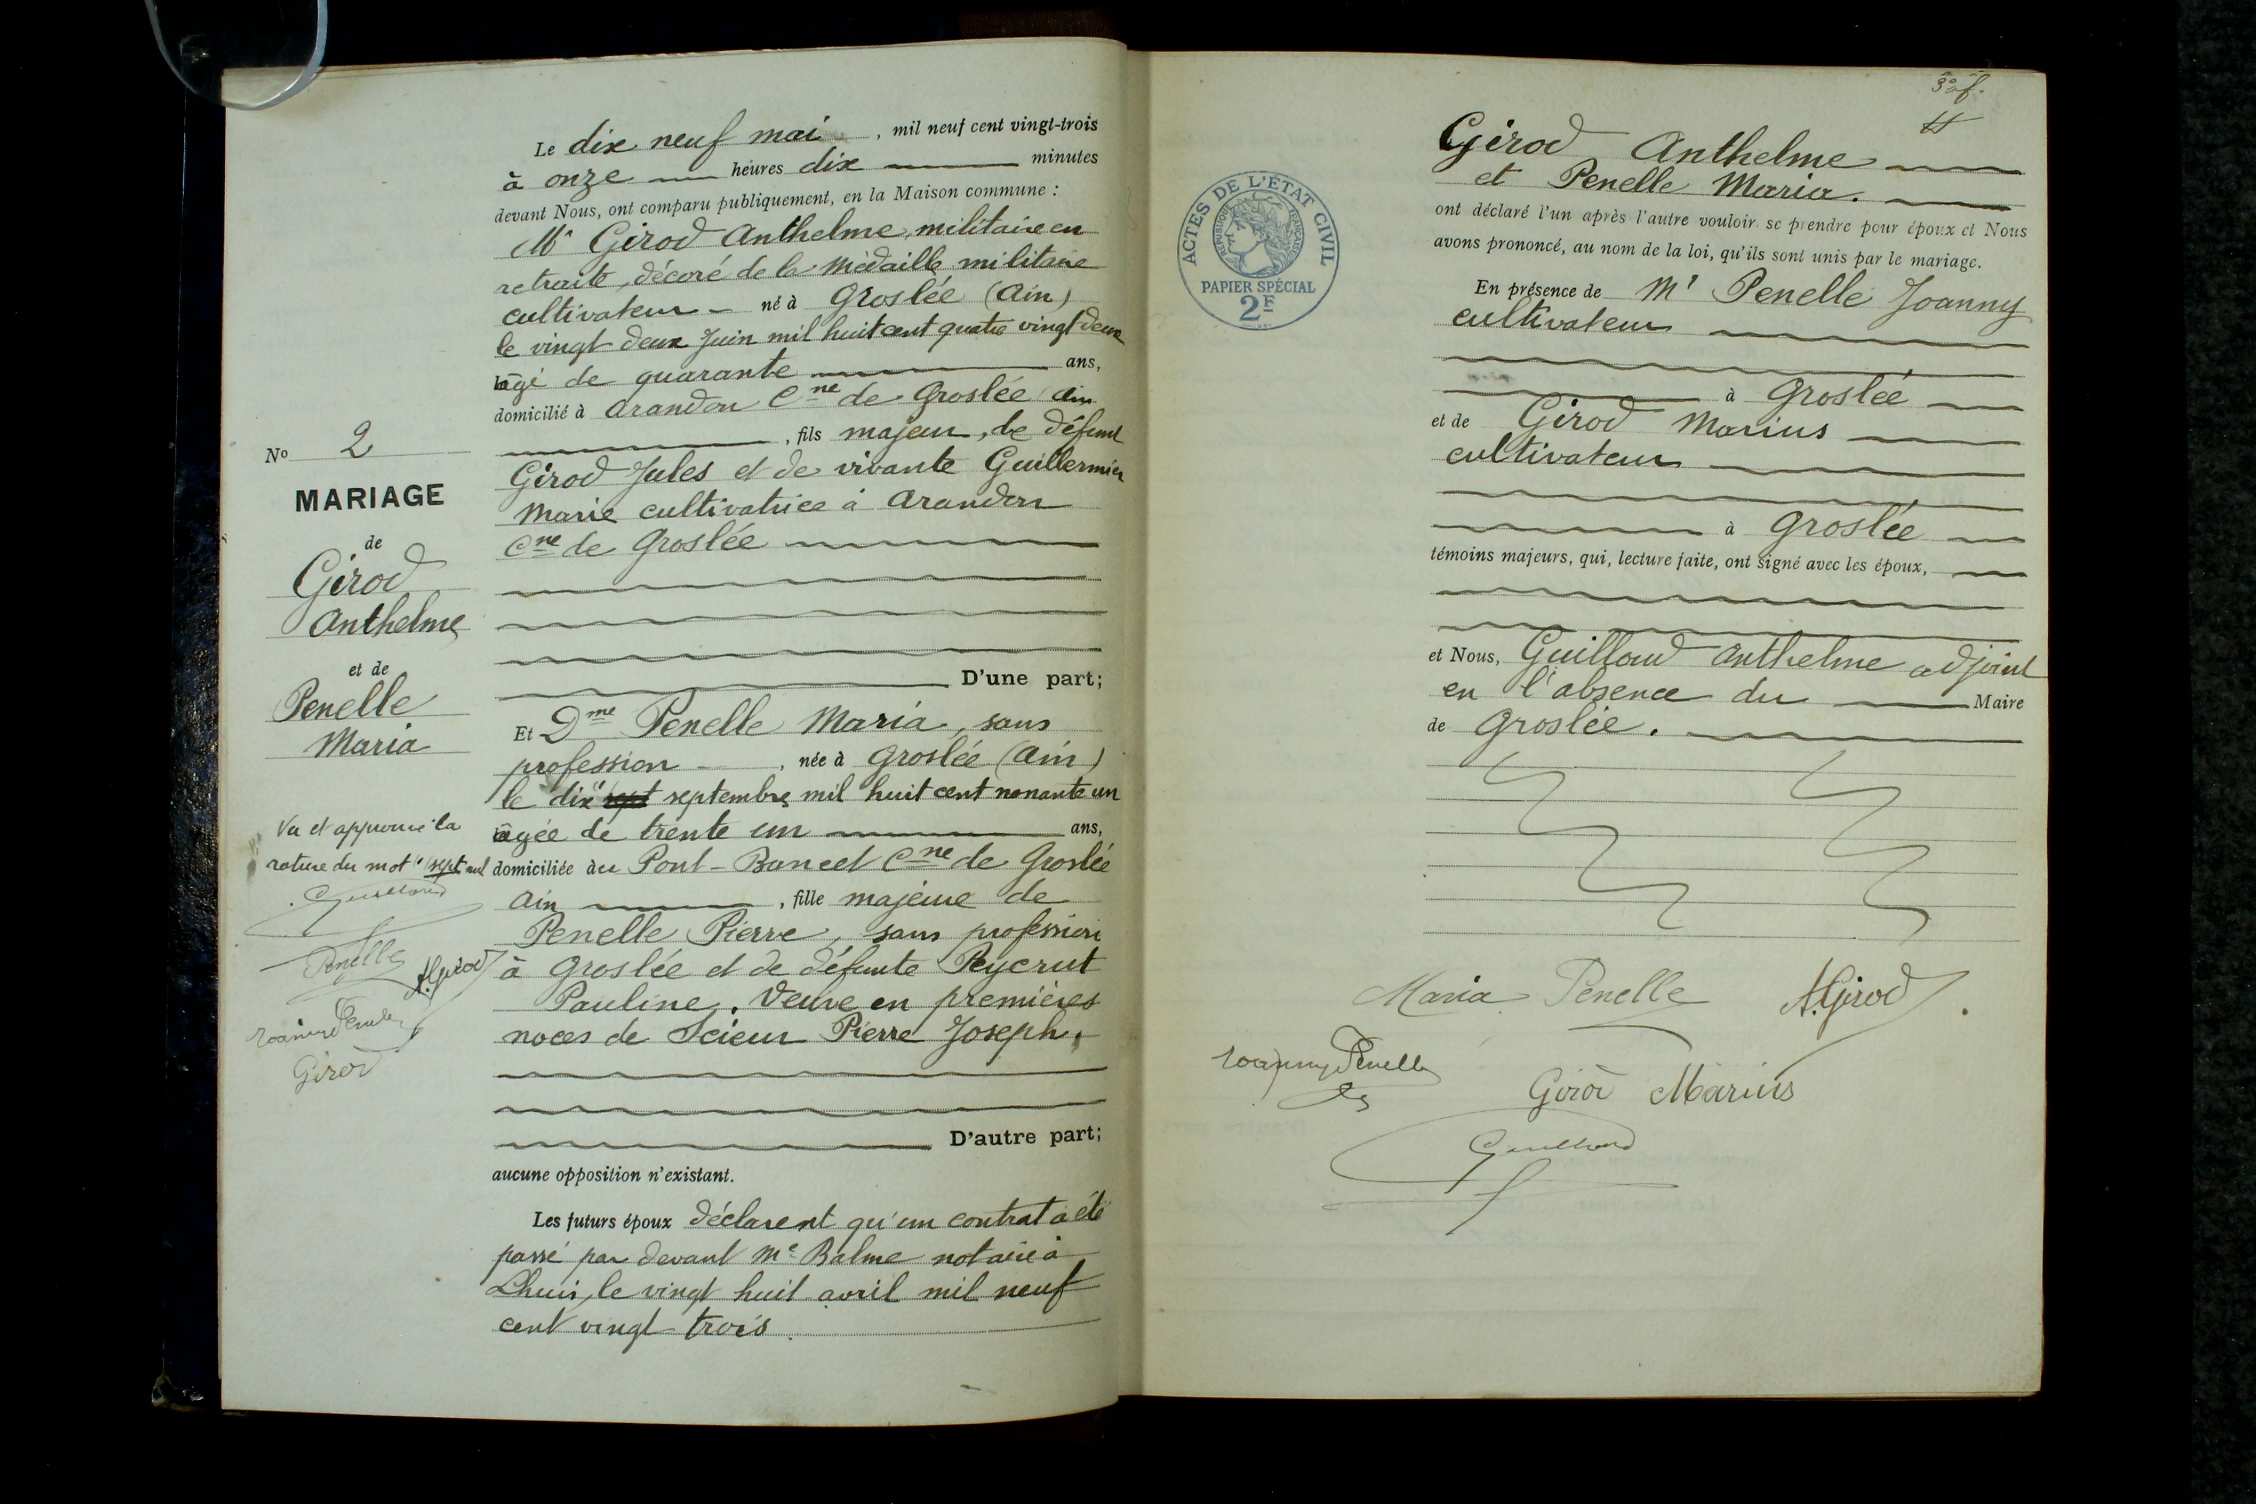 Le dix neuf mai, mil neuf cent vingt-trois
à onze heures dix minutes
devant Nous, ont comparu publiquement, en la Maison commune :
Mr Girod Anthelme, militaire en
retraite, décoré de la médaille militaire
cultivateur né à Groslée (Ain)
le vingt deux Juin mil huit cent quatre vingt deux
âgé de quarante ans,
domicilié à Arandon Cne de Groslée Ain
, fils majeur, de défunt
Girod Jules et de vivante Guillermier
Marie cultivatrice à Arandon
Cne de Groslée
D'une part;
Et Dme Penelle Maria, sans
profession, née à Groslée (Ain)
le dix sept septembre mil huit cent nonante un
âgée de trente un ans,
domiciliée au Pont-Bancet Cne de Groslée
Ain, fille majeure de
Penelle Pierre, sans profession
à Groslée et de défunte Peycrut
Pauline. Veuve en premières
noces de Scieur Pierre Joseph.
D'autre part;
aucune opposition n'existant.
Les futurs époux déclarent qu'un contrat a été
passé par devant Me Balme notaire à
Lhuis, le vingt huit avril mil neuf
cent vingt trois.
No 2
MARIAGE
de
Girod
Anthelme
et de
Penelle
Maria
Vu et approuvé la
rature du mot "sept" nul
Guilland
Penelle
A. Girod
Joanny Penelle
Girod
Girod Anthelme
et Penelle Maria.
ont déclaré l'un après l'autre vouloir se prendre pour époux et Nous
avons prononcé, au nom de la loi, qu'ils sont unis par le mariage.
En présence de Mr Penelle Joanny
cultivateur
à Groslée
et de Girod Marius
cultivateur
à Groslée
témoins majeurs, qui, lecture faite, ont signé avec les époux,
et Nous, Guilland Anthelme adjoint
en l'absence du Maire
de Groslée.
Maria Penelle A. Girod
Joanny Penelle
Girod Marius
Guilland
ACTES DE L'ÉTAT CIVIL
RÉPUBLIQUE FRANÇAISE
PAPIER SPÉCIAL
2F